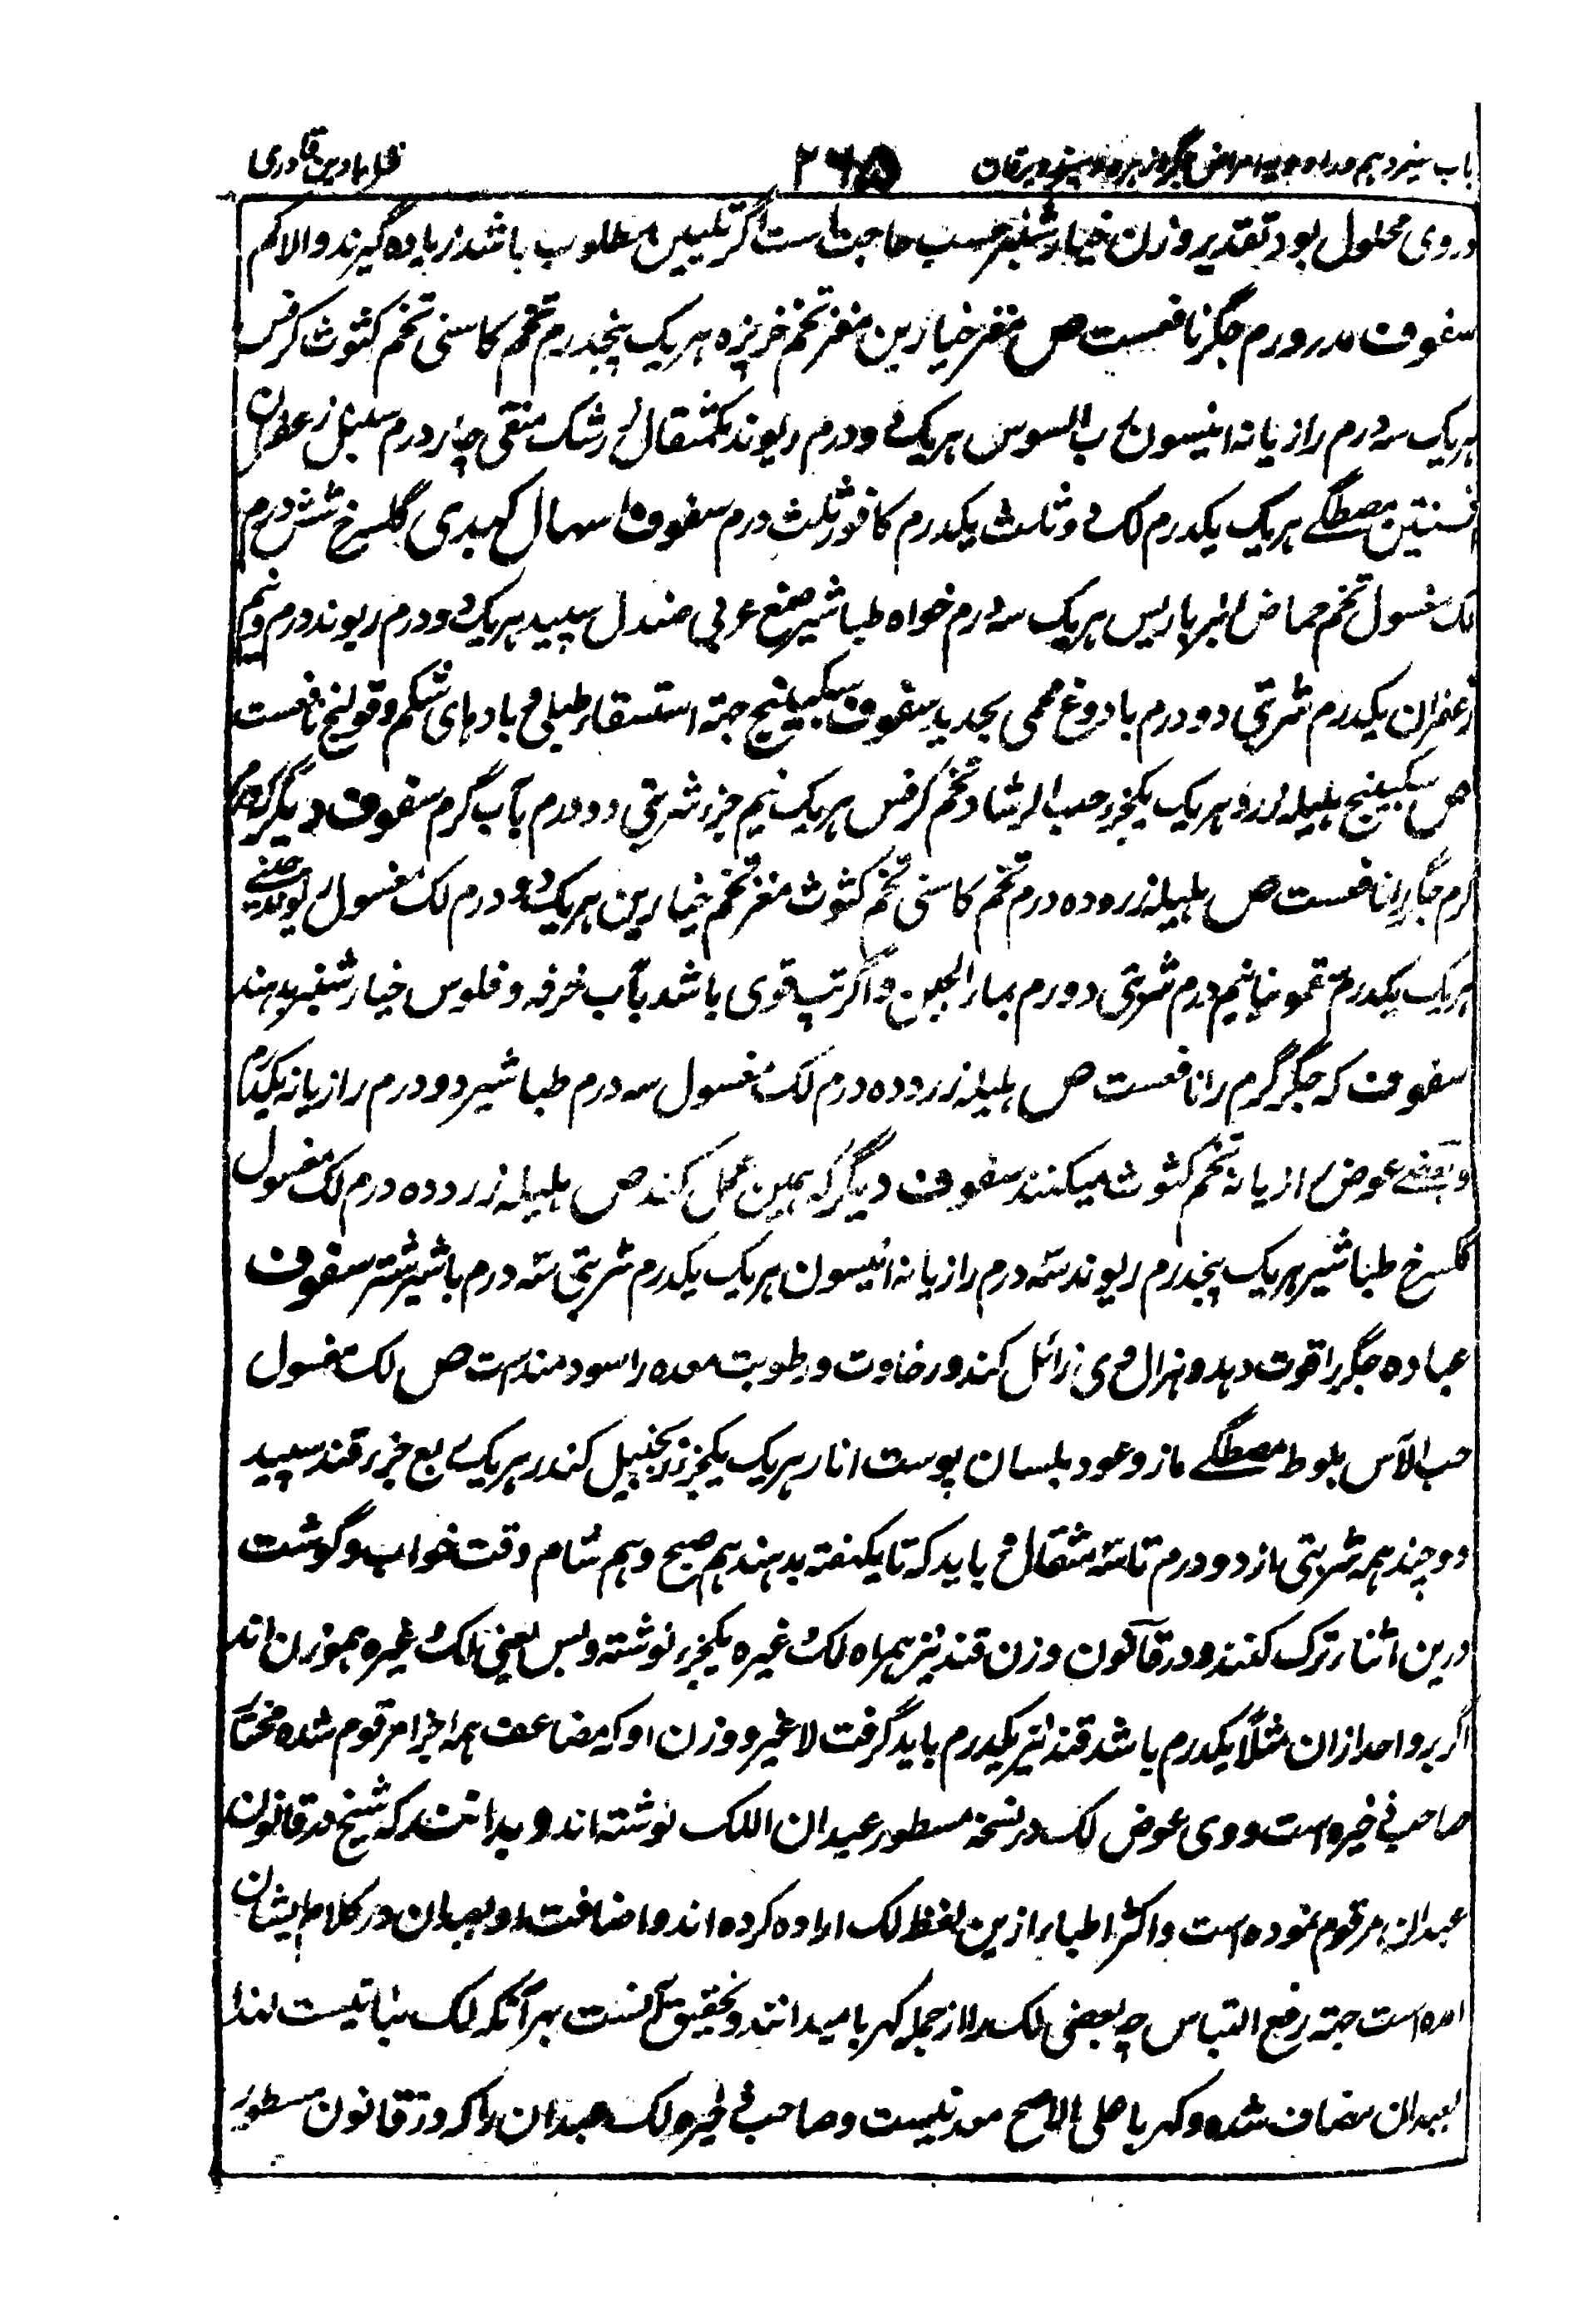 باب سیزدهم در ادویه امراض جگر و زهره و سپرز و یرقان ۲۶۵ قرابادین قادری
در وی محلول بود تقدیر وزن خیارشنبر حسب حاجت است اگر تلیین مطلوب باشد زیاده گیرند والا کم
سفوف مدر ورم جگر نافعست ص مغز خیارین مغز تخم خرپزه هریک پنجدرم تخم کاسنی تخم کثوث کرفس
هریک سه درم رازیانه انیسون رب السوس هریک دو درم ریوند یکمثقال زرشک منقی چار درم سنبل زعفران
افسنتین مصطگے هریک یکدرم لک دو ثلث یکدرم کافور ثلث درم سفوف اسهال کبدی گلسرخ شش درم
لک مغسول تخم حماض انبرباریس هریک سه درم خواه طباشیر صمغ عربی صندل سپید هریک دو درم ریوند درم و نیم
زعفران یکدرم شربتی دو درم با دوغ محمی بحدید سفوف سکبینج جهته استسقاء طبلی و بادهای شکم و قولنج نافعست
ص سکبینج هلیله زرد هریک یکجزء حب الرشاد تخم کرفس هریک نیم جزء شربتی دو درم بآب گرم سفوف دیگر که ورم
گرم جگر را نافعست ص هلیله زرد ده درم تخم کاسنی تخم کثوث مغز تخم خیارین هریک دو درم لک مغسول ریوند چینے
هریک یکدرم سقمونیا نیم درم شربتی دو درم بماء الجبن و اگر تپ قوی باشد بآب خرفه و فلوس خیارشنبر بدهند
سفوف که جگر گرم را نافعست ص هلیله زرد ده درم لک مغسول سه درم طباشیر دو درم رازیانه یکدرم
و بعضے عوض رازیانه تخم کثوث میکنند سفوف دیگر که همین عمل کند ص هلیله زرد ده درم لک مغسول
گلسرخ طباشیر هریک پنجدرم ریوند سه درم رازیانه انیسون هریک یکدرم شربتی سه درم با شیر شتر سفوف
عباده جگر را قوت دهد و هزال وی زائل کند و رخاوت و رطوبت معده را سودمند است ص لک مغسول
حب الآس بلوط مصطگے مازو عود بلسان پوست انار هریک یکجزء زنجبیل کندر هریک ربع جزء قند سپید
دو چند همه شربتی از دو درم تا سه مثقال و باید که تا یکهفته بدهند هم صبح و هم شام وقت خواب و گوشت
درین اثناء ترک کنند و در قانون وزن قند نیز همراه لک وغیره یکجزء نوشته و بس یعنی لک وغیره هموزن اند
اگر هر واحد ازان مثلاً یکدرم باشد قند نیز یکدرم باید گرفت لاغیر و وزن او که مضاعف همه اجزا مرقوم شده مختار
صاحب ذخیره است و وی عوض لک در نسخه مسطور عیدان اللک نوشته اند و بدانند که شیخ در قانون
عیدان مرقوم نموده است و اکثر اطباء ازین لفظ لک اراده کرده اند و اضافت او بعیدان در کلام ایشان
آمده است جهته رفع التباس چه بعضی لک را از جمله کهربا میدانند و تحقیق آنست بهر آنکه لک نباتیست لهذا
بعیدان مضاف شده و کهربا علی الاصح معدنیست و صاحب ذخیره لک عیدان را که در قانون مسطور